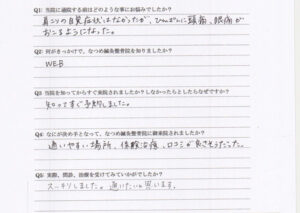 Q1: 当院に通院する前はどのような事にお悩みでしたか？
肩コリの自覚症状はなかったが、ひんぱんに頭痛、眼痛が
おこるようになった。
Q2: 何がきっかけで、なつめ鍼灸整骨院を知りましたか？
WEB
Q3: 当院を知ってからすぐ来院されましたか？しなかったらとしたらなぜですか？
知ってすぐ予約しました。
Q4: なにが決め手となって、なつめ鍼灸整骨院に御来院されましたか？
通いやすい場所、体験治療、口コミが良さそうだった。
Q5: 実際、問診、治療を受けてみていかがでしたか？
スッキリしました。通いたいと思います。